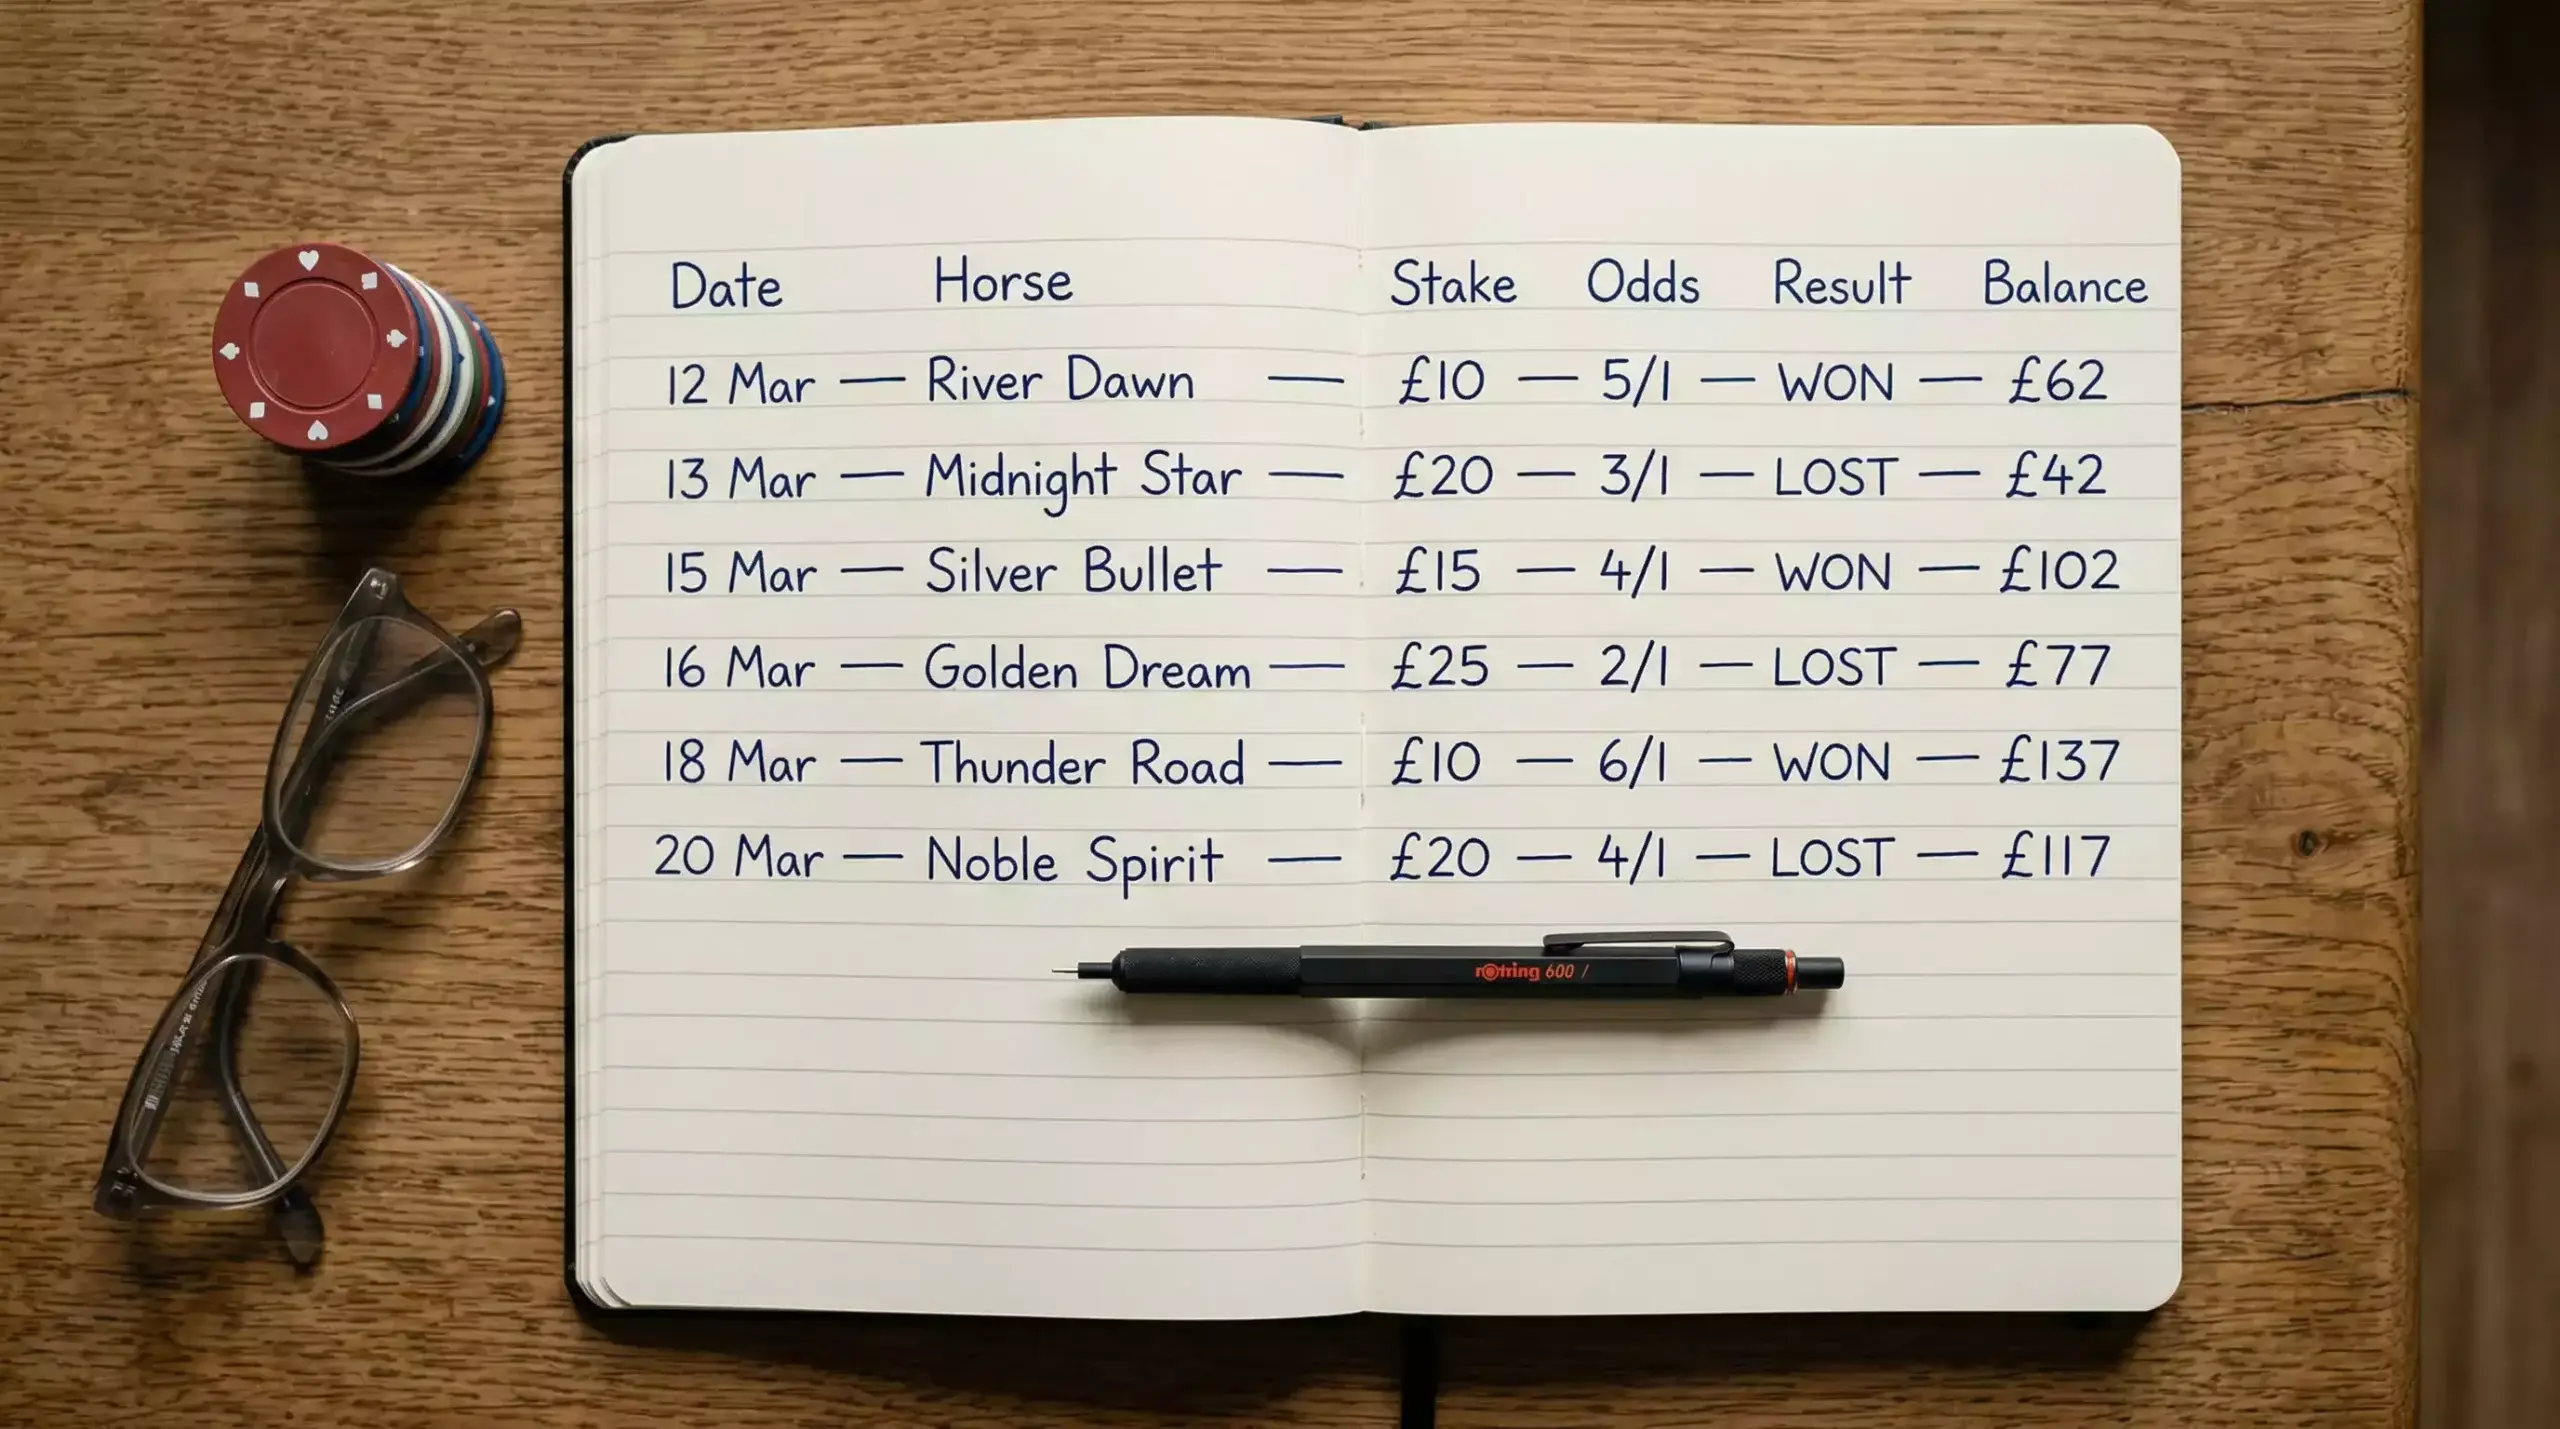 Date Horse Stake Odds Result Balance
12 Mar — River Dawn — £10 — 5/1 — WON — £62
13 Mar — Midnight Star — £20 — 3/1 — LOST — £42
15 Mar — Silver Bullet — £15 — 4/1 — WON — £102
16 Mar — Golden Dream — £25 — 2/1 — LOST — £77
18 Mar — Thunder Road — £10 — 6/1 — WON — £137
20 Mar — Noble Spirit — £20 — 4/1 — LOST — £117
rotring 600 /